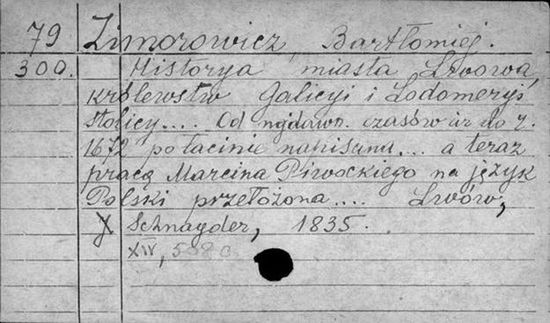 79 Zimorowicz, Bartłomiej.
300. Historya miasta Lwowa,
królewstw Galicyi i Lodomeryi
stolicy.... Od najdawn. czasów aż do r.
1672 po łacinie napisana.... a teraz
pracą Marcina Piwockiego na język
Polski przełożona.... Lwów,
Schnayder, 1835.
XIV,